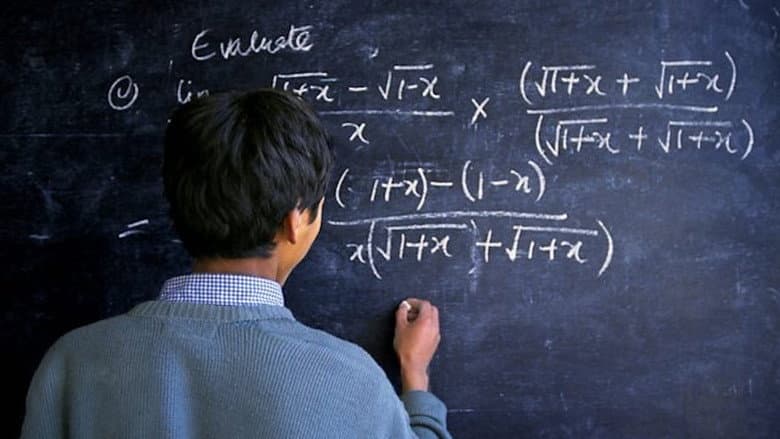 Evaluate
ⓒ lim (√(1+x) − √(1-x))/x × (√(1+x) + √(1+x))/(√(1+x) + √(1+x))
= ((1+x)−(1−x))/(x(√(1+x) + √(1+x)))